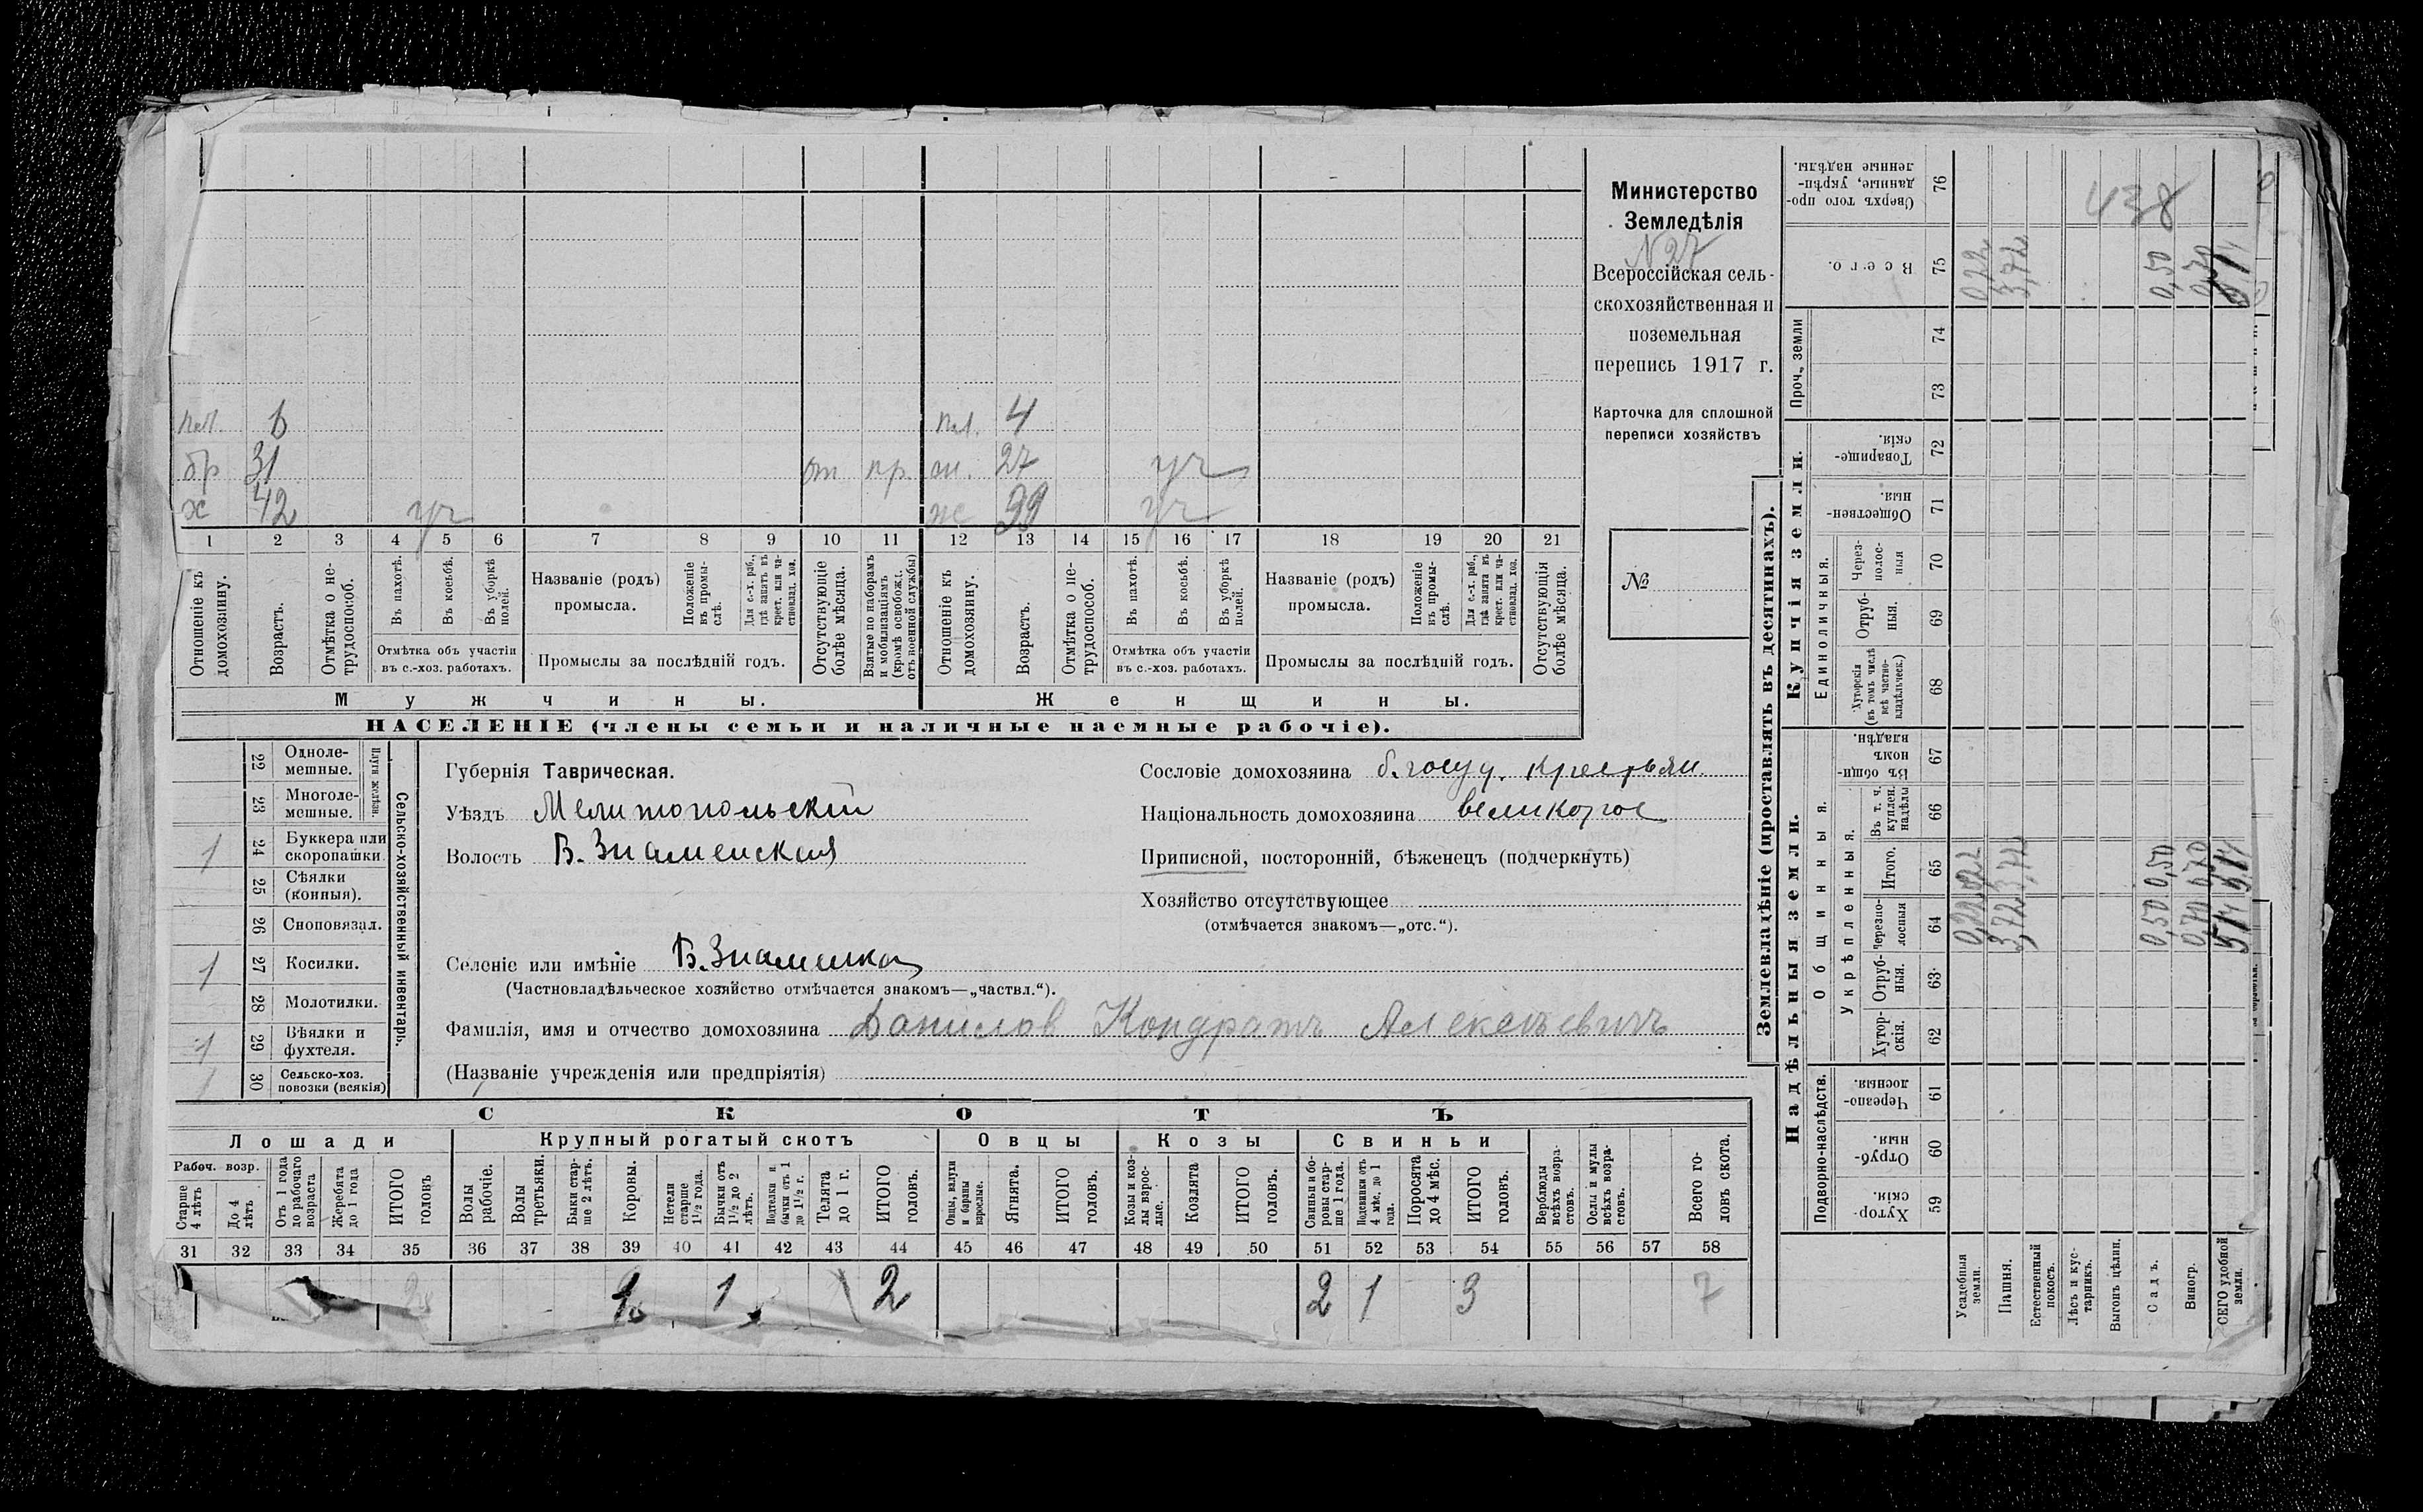 пл. 6 пл. 4
бр 31 от пр. 27 уч
х 42 уч ж 39 уч
1 2 3 4 5 6 7 8 9 10 11 12 13 14 15 16 17 18 19 20 21
Отношеніе къ домохозяину.
Возрастъ.
Отмѣтка о нетрудоспособ.
Въ пахотѣ.
Въ косьбѣ.
Въ уборкѣ полей.
Отмѣтка объ участіи
въ с.-хоз. работахъ.
Названіе (родъ)
промысла.
Положеніе въ промыслѣ.
Для с.-х. раб., гдѣ занятъ въ крест. или частновлад. хоз.
Промыслы за послѣдній годъ.
Отсутствующіе болѣе мѣсяца.
Взятые по наборамъ и мобилизаціямъ (кромѣ освобожд. отъ военной службы)
Отношеніе къ домохозяину.
Возрастъ.
Отмѣтка о нетрудоспособ.
Въ пахотѣ.
Въ косьбѣ.
Въ уборкѣ полей.
Отмѣтка объ участіи
въ с.-хоз. работахъ.
Названіе (родъ)
промысла.
Положеніе въ промыслѣ.
Для с.-х. раб., гдѣ занята въ крест. или частновлад. хоз.
Промыслы за послѣдній годъ.
Отсутствующія болѣе мѣсяца.
Мужчины. Женщины.
НАСЕЛЕНІЕ (члены семьи и наличные наемные рабочіе).
Министерство
Земледѣлія
N 27
Всероссійская сель-
скохозяйственная и
поземельная
перепись 1917 г.
Карточка для сплошной
переписи хозяйствъ
№
Сельско-хозяйственный инвентарь.
Плуги желѣзн.
22 Одноле-
мешные.
23 Многоле-
мешные.
1 24 Буккера или
скоропашки
25 Сѣялки
(конныя).
26 Сноповязал.
1 27 Косилки.
28 Молотилки.
1 29 Вѣялки и
фухтеля.
1 30 Сельско-хоз.
повозки (всякія)
Губернія Таврическая.
Уѣздъ Мелитопольскій
Волость Б. Знаменская
Селеніе или имѣніе Б. Знаменка
(Частновладѣльческое хозяйство отмѣчается знакомъ—„частвл.“).
Фамилія, имя и отчество домохозяина Данилов Кондратъ Алексѣевичъ
(Названіе учрежденія или предпріятія)
Сословіе домохозяина б. госуд. крестьян.
Національность домохозяина великорос
Приписной, посторонній, бѣженецъ (подчеркнуть)
Хозяйство отсутствующее
(отмѣчается знакомъ—„отс.“).
СКОТЪ
Лошади Крупный рогатый скотъ Овцы Козы Свиньи
Рабоч. возр.
Старше 4 лѣтъ
До 4 лѣтъ
Отъ 1 года до рабочаго возраста
Жеребята до 1 года
ИТОГО головъ
Волы рабочіе.
Волы третьяки.
Быки старше 2 лѣтъ.
Коровы.
Нетели старше 1½ года.
Бычки отъ 1½ до 2 лѣтъ.
Подтелки и бычки отъ 1 до 1½ г.
Телята до 1 г.
ИТОГО головъ.
Овцы, валухи и бараны взрослые.
Ягнята.
ИТОГО головъ.
Козы и козлы взрослые.
Козлята
ИТОГО головъ.
Свиньи и боровы старше 1 года.
Подсвинки отъ 4 мѣс. до 1 года.
Поросята до 4 мѣс.
ИТОГО головъ.
Верблюды всѣхъ возрастовъ.
Ослы и мулы всѣхъ возрастовъ.
Всего головъ скота.
31 32 33 34 35 36 37 38 39 40 41 42 43 44 45 46 47 48 49 50 51 52 53 54 55 56 57 58
2 1 2 2 1 3 7
Землевладѣніе (проставлять въ десятинахъ).
Надѣльныя земли. Купчія земли. Проч. земли
Подворно-наслѣдств. Общинныя. Единоличныя.
Укрѣпленныя.
Хуторскія. 59
Отрубныя. 60
Черезполосныя. 61
Хуторскія. 62
Отрубныя. 63
Черезполосныя 64
Итого. 65
Въ т. ч. куплен. надѣлы 66
Въ общинномъ владѣн. 67
Хуторскія (въ томъ числѣ всѣ частновладѣльческ.) 68
Отрубныя. 69
Черезполосныя 70
Общественныя. 71
Товарищескія. 72
73
74
Всего. 75
Сверхъ того проданные, укрѣпленные надѣлы. 76
438
Усадебныя земли. 0,22 0,22 0,22
Пашня. 3,72 3,72 3,72
Естественный покосъ.
Лѣсъ и кустарникъ.
Выгонъ цѣлин.
Садъ. 0,50 0,50 0,50
Виногр. 0,70 0,70 0,70
СЕГО удобной земли. 514 514 514